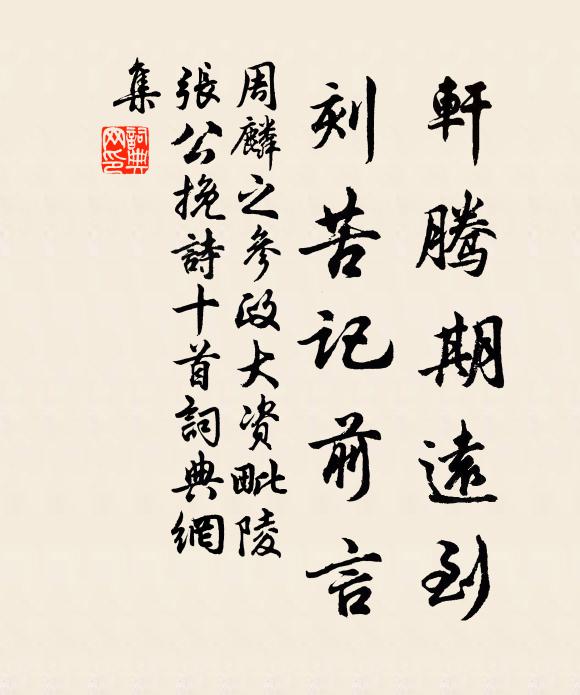 軒騰期遠到
刻苦記前言
周麟之參政大资毗陵
張公挽詩十首詞典網
集
詞典網印